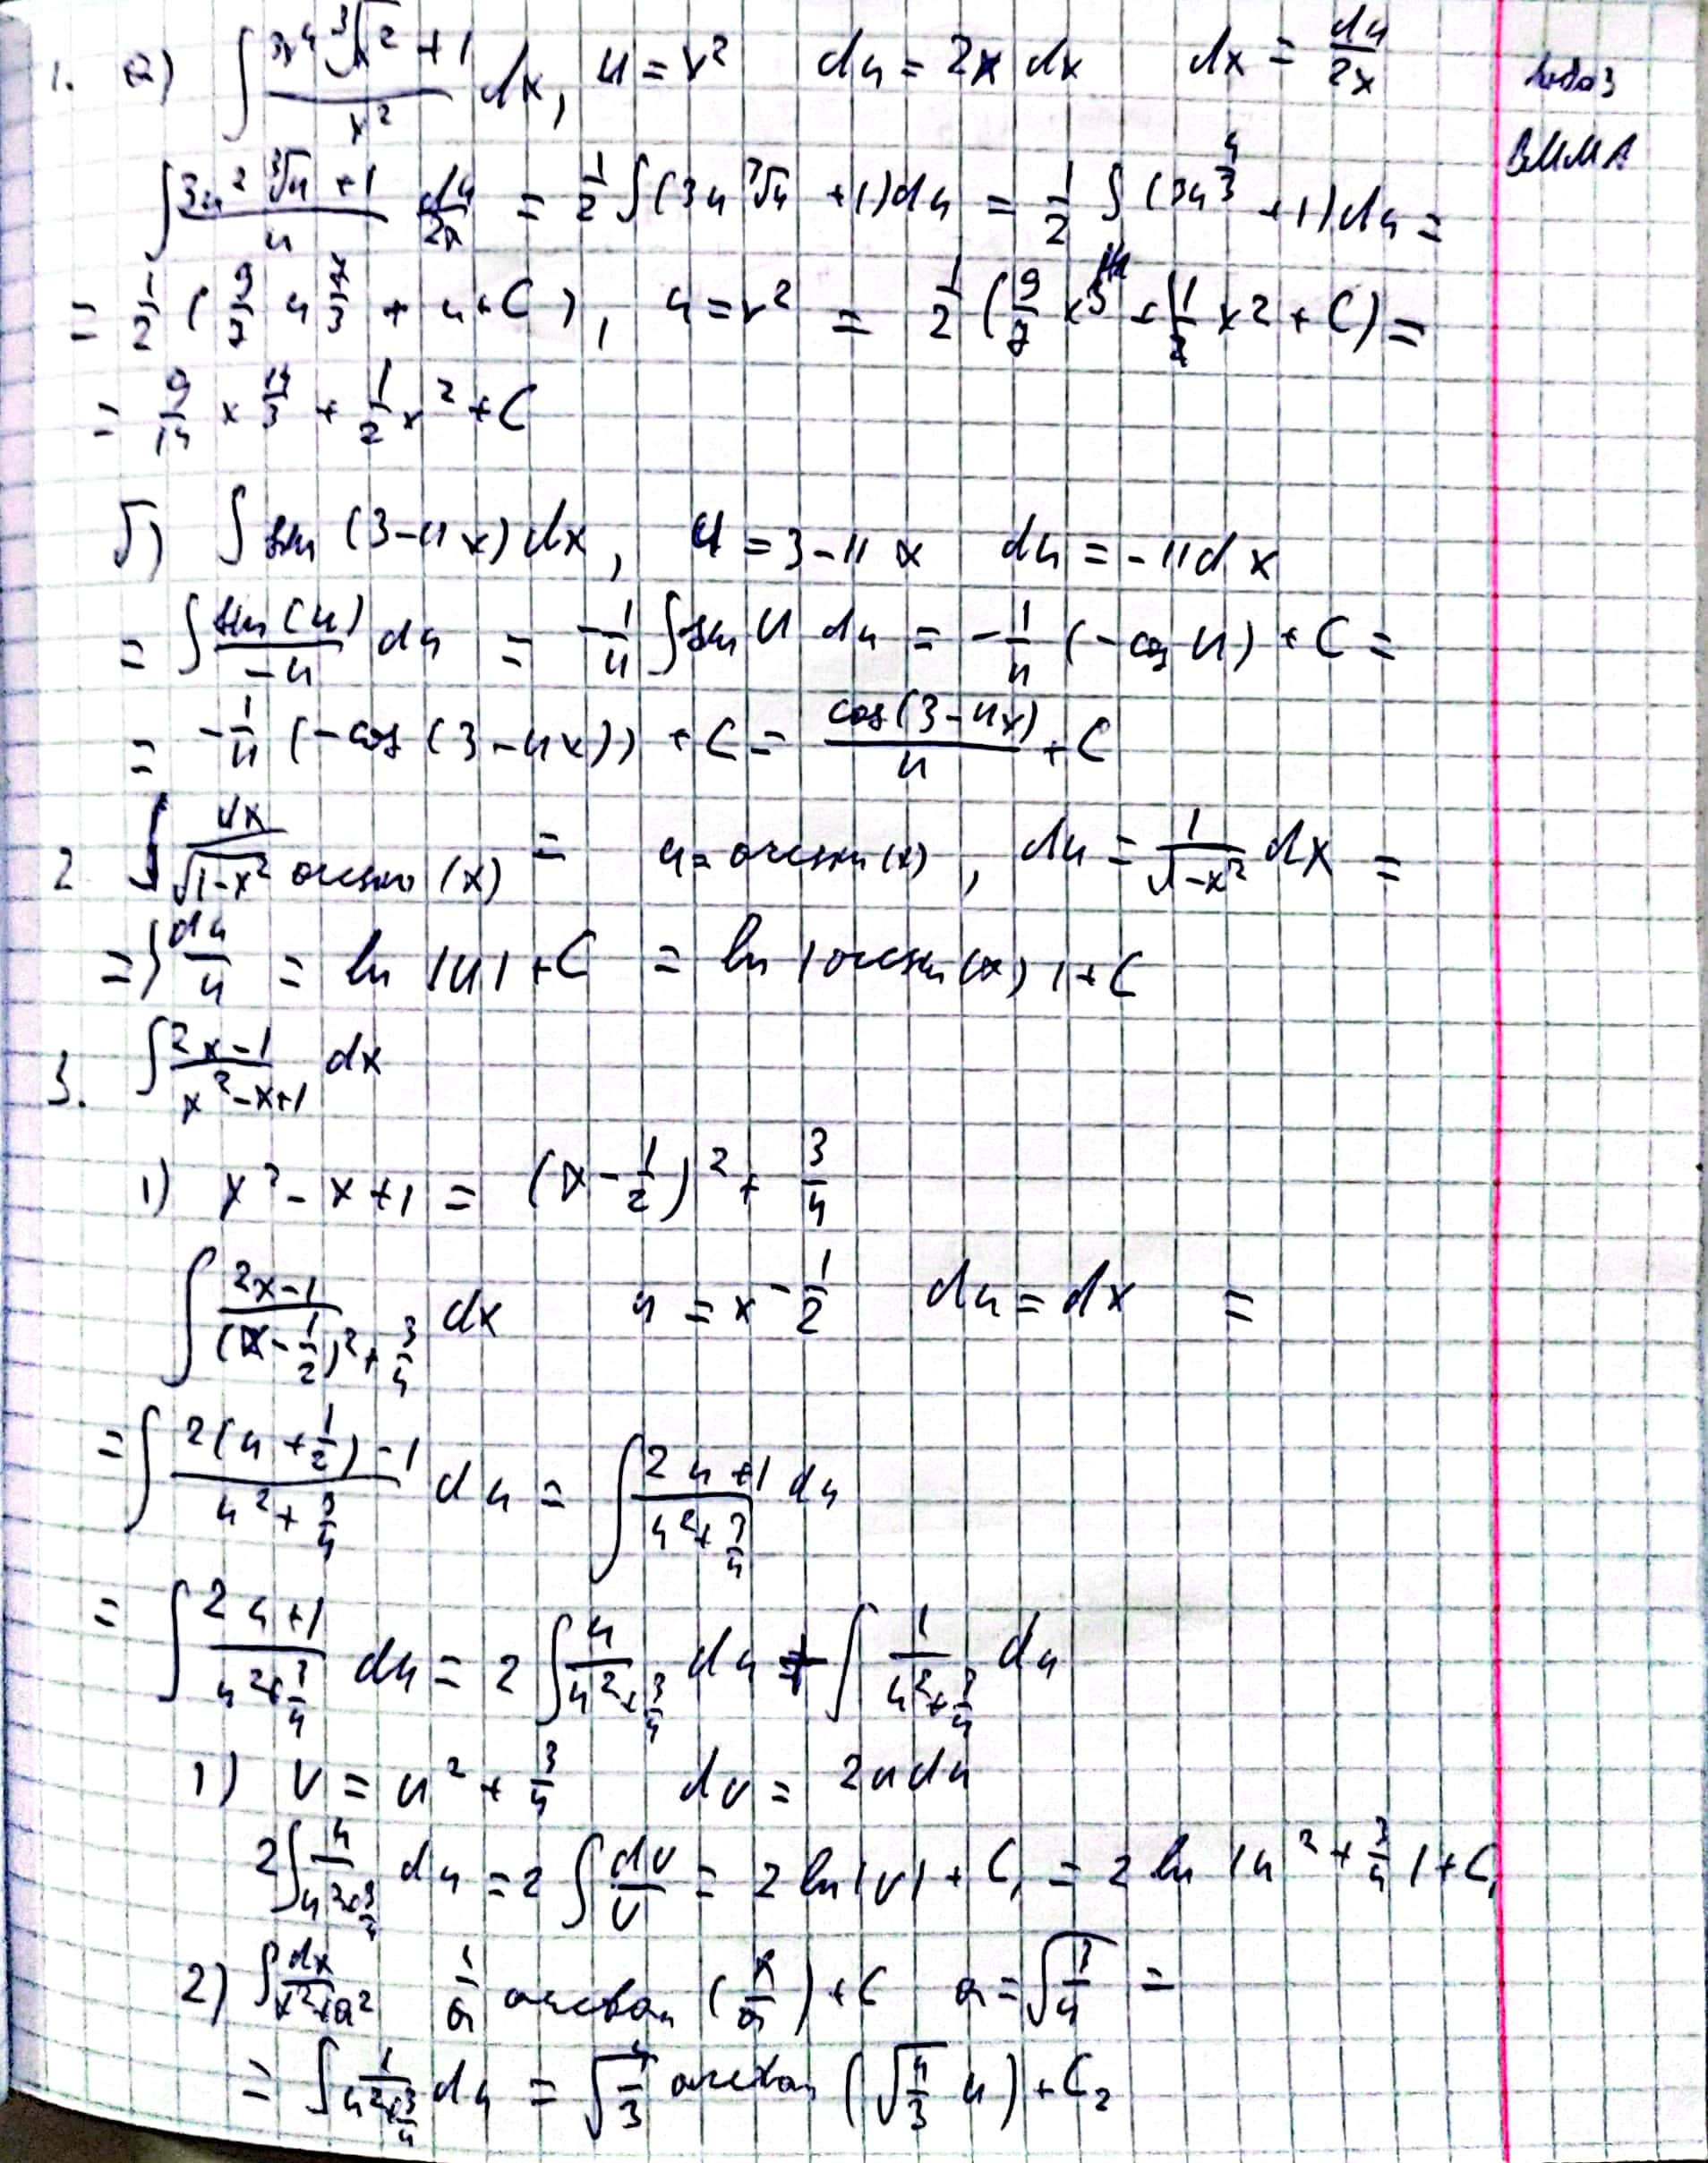 1. а) ∫ (3x⁴ ∛x² + 1)/x² dx, u = x² du = 2x dx dx = du/2x
ВММА
∫ (3u² ∛u + 1)/u du/2x = 1/2 ∫ (3u ∛u + 1) du = 1/2 ∫ (3u^(4/3) + 1) du =
= 1/2 (9/7 u^(7/3) + u + C), u = x² = 1/2 (9/7 x^(14/3) + 1/2 x2 + C) =
= 9/14 x^(14/3) + 1/2 x² + C
б) ∫ sin (3-11x) dx, u = 3-11x du = -11dx
= ∫ sin(u)/-11 du = -1/11 ∫ sin u du = -1/11 (-cos u) + C =
= -1/11 (-cos (3-11x)) + C = cos(3-11x)/11 + C
2 ∫ dx/(√(1-x²) arcsin(x)) = u = arcsin(x), du = 1/√(1-x²) dx =
= ∫ du/u = ln |u| + C = ln |arcsin(x)| + C
3. ∫ (2x-1)/(x²-x+1) dx
1) x² - x + 1 = (x - 1/2)² + 3/4
∫ (2x-1)/((x-1/2)² + 3/4) dx u = x - 1/2 du = dx =
= ∫ (2(u + 1/2) - 1)/(u² + 3/4) du = ∫ (2u+1)/(u² + 3/4) du
= ∫ (2u+1)/(u² + 3/4) du = 2 ∫ u/(u² + 3/4) du + ∫ 1/(u² + 3/4) du
1) v = u² + 3/4 dv = 2u du
2 ∫ u/(u² + 3/4) du = 2 ∫ dv/v = 2 ln|v| + C₁ = 2 ln |u² + 3/4| + C₁
2) ∫ dx/(x²+a²) 1/a arctan (x/a) + C a = √(3/4) =
= ∫ 1/(u² + 3/4) du = √(4/3) arctan (√(4/3) u) + C₂